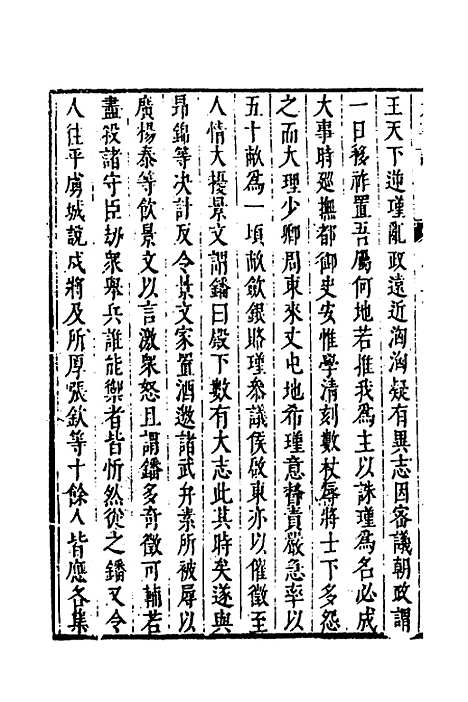 王天下逆瑾亂政遠近洶洶疑有異志因審議朝政謂
一日移祚置吾屬何地若推我為主以誅瑾為名必成
大事時廵撫都御史安惟學清刻數杖辱將士下多怨
之而大理少卿周東來丈屯地希瑾意督責嚴急率以
五十畝為一頃畝斂銀賂瑾叅議侯啟東亦以催徵至
人情大擾景文謂鐇曰殿下數有大志此其時矣遂與
昂錦等决計反令景文家置酒邀諸武弁素所被辱以
廣楊泰等飲景文以言激衆怒且謂鐇多奇徵可輔若
盡殺諸守臣劫衆舉兵誰能禦者皆忻然從之鐇又令
人往平虜城說戍將及所厚張欽等十餘人皆應各集